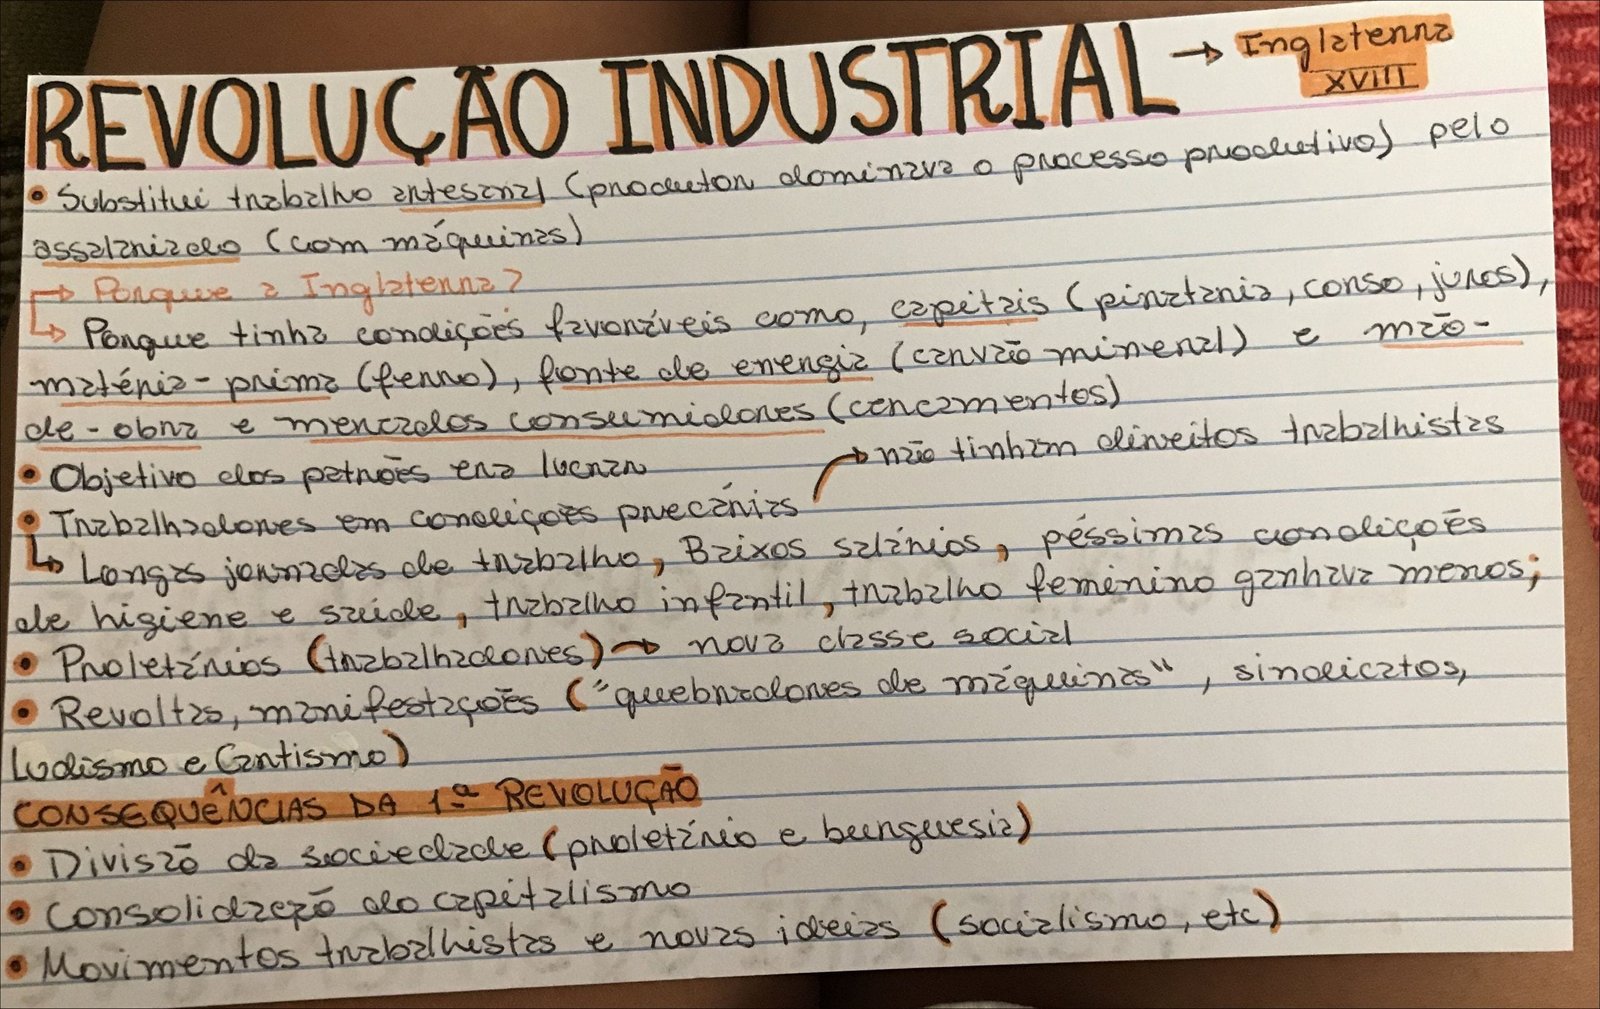 REVOLUÇÃO INDUSTRIAL → Inglaterra
XVIII
• Substitui trabalho artesanal (produtor dominava o processo produtivo) pelo
assalariado (com máquinas)
→ Porque a Inglaterra?
↳ Porque tinha condições favoráveis como, capitais (pirataria, corso, juros),
matéria-prima (ferro), fonte de energia (carvão mineral) e mão-
de-obra e mercados consumidores (cercamentos)
• Objetivo dos patrões era lucrar
→ não tinham direitos trabalhistas
• Trabalhadores em condições precárias
↳ Longas jornadas de trabalho, Baixos salários, péssimas condições
de higiene e saúde, trabalho infantil, trabalho feminino ganhava menos;
• Proletários (trabalhadores) → nova classe social
• Revoltas, manifestações ("quebradores de máquinas", sindicatos,
Ludismo e Cartismo)
CONSEQUÊNCIAS DA 1ª REVOLUÇÃO
• Divisão da sociedade (proletário e burguesia)
• Consolidação do capitalismo
• Movimentos trabalhistas e novas ideias (socialismo, etc)